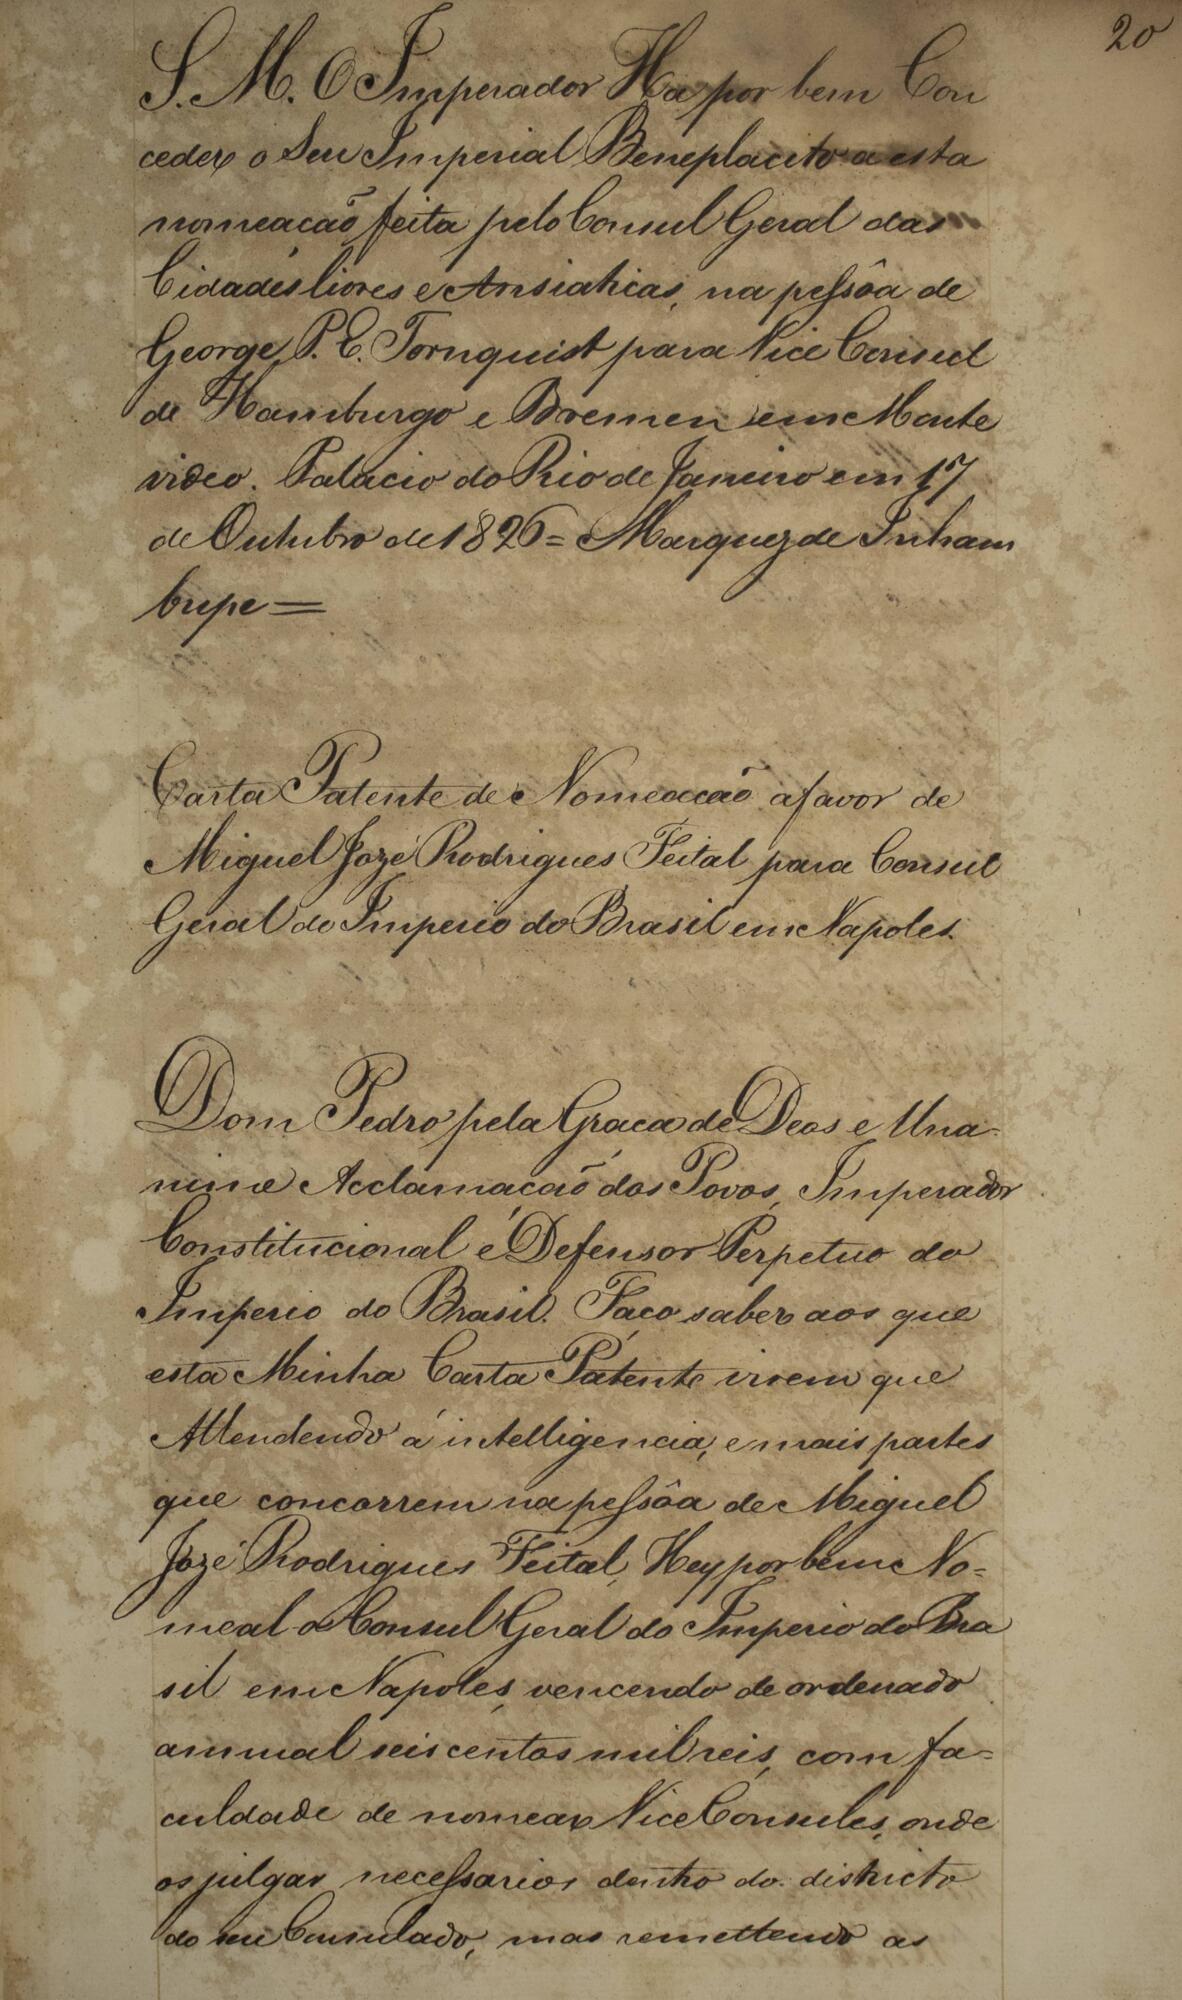 20
S. M. O Imperador Ha por bem Con
ceder o Seu Imperial Beneplacito a esta
nomeacão feita pelo Consul Geral das
Cidades livres e Ansiaticas, na peſsôa de
George P. E. Tornquist para Vice Consul
de Hamburgo e Bremen em Monte
video. Palacio do Rio de Janeiro em 17
de Outubro de 1826 = Marquez de Inham
bupe =
Carta Patente de Nomeacão a favor de
Miguel Jozé Rodrigues Feital para Consul
Geral do Imperio do Brasil em Napoles.
Dom Pedro pela Graça de Deos e Una-
nime Acclamação dos Povos, Imperador
Constitucional e Defensor Perpetuo do
Imperio do Brasil. Faço saber aos que
esta Minha Carta Patente virem que
Attendendo á intelligencia, e mais partes
que concorrem na peſsôa de Miguel
Jozé Rodrigues Feital, Hey por bem No-
meal o Consul Geral do Imperio do Bra
sil em Napoles, vencendo de ordenado
annual seis centos mil reis, com fa-
culdade de nomear Vice Consules, onde
os julgar neceſsarios dentro do districto
do seu Consulado, mas remettendo as